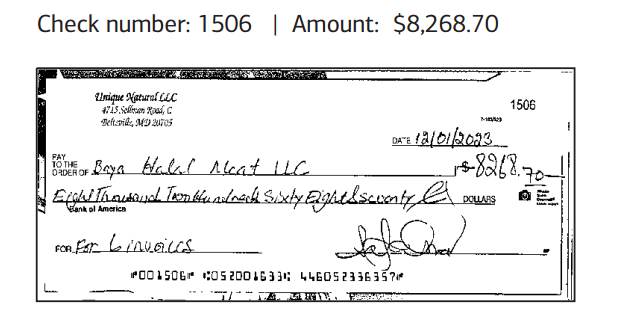 Check number: 1506 | Amount: $8,268.70
Unique Natural LLC
4715 Sellman Road, C
Beltsville, MD 20705
1506
7-163/520
DATE 12/01/2023
PAY TO THE ORDER OF Baya Halal Meat LLC $8268.70
Eight Thousand Two Hundred Sixty Eight & seventy DOLLARS
Bank of America
FOR For 6 invoices
⑈001506⑈ ⑆052001633⑆ 446052336357⑈